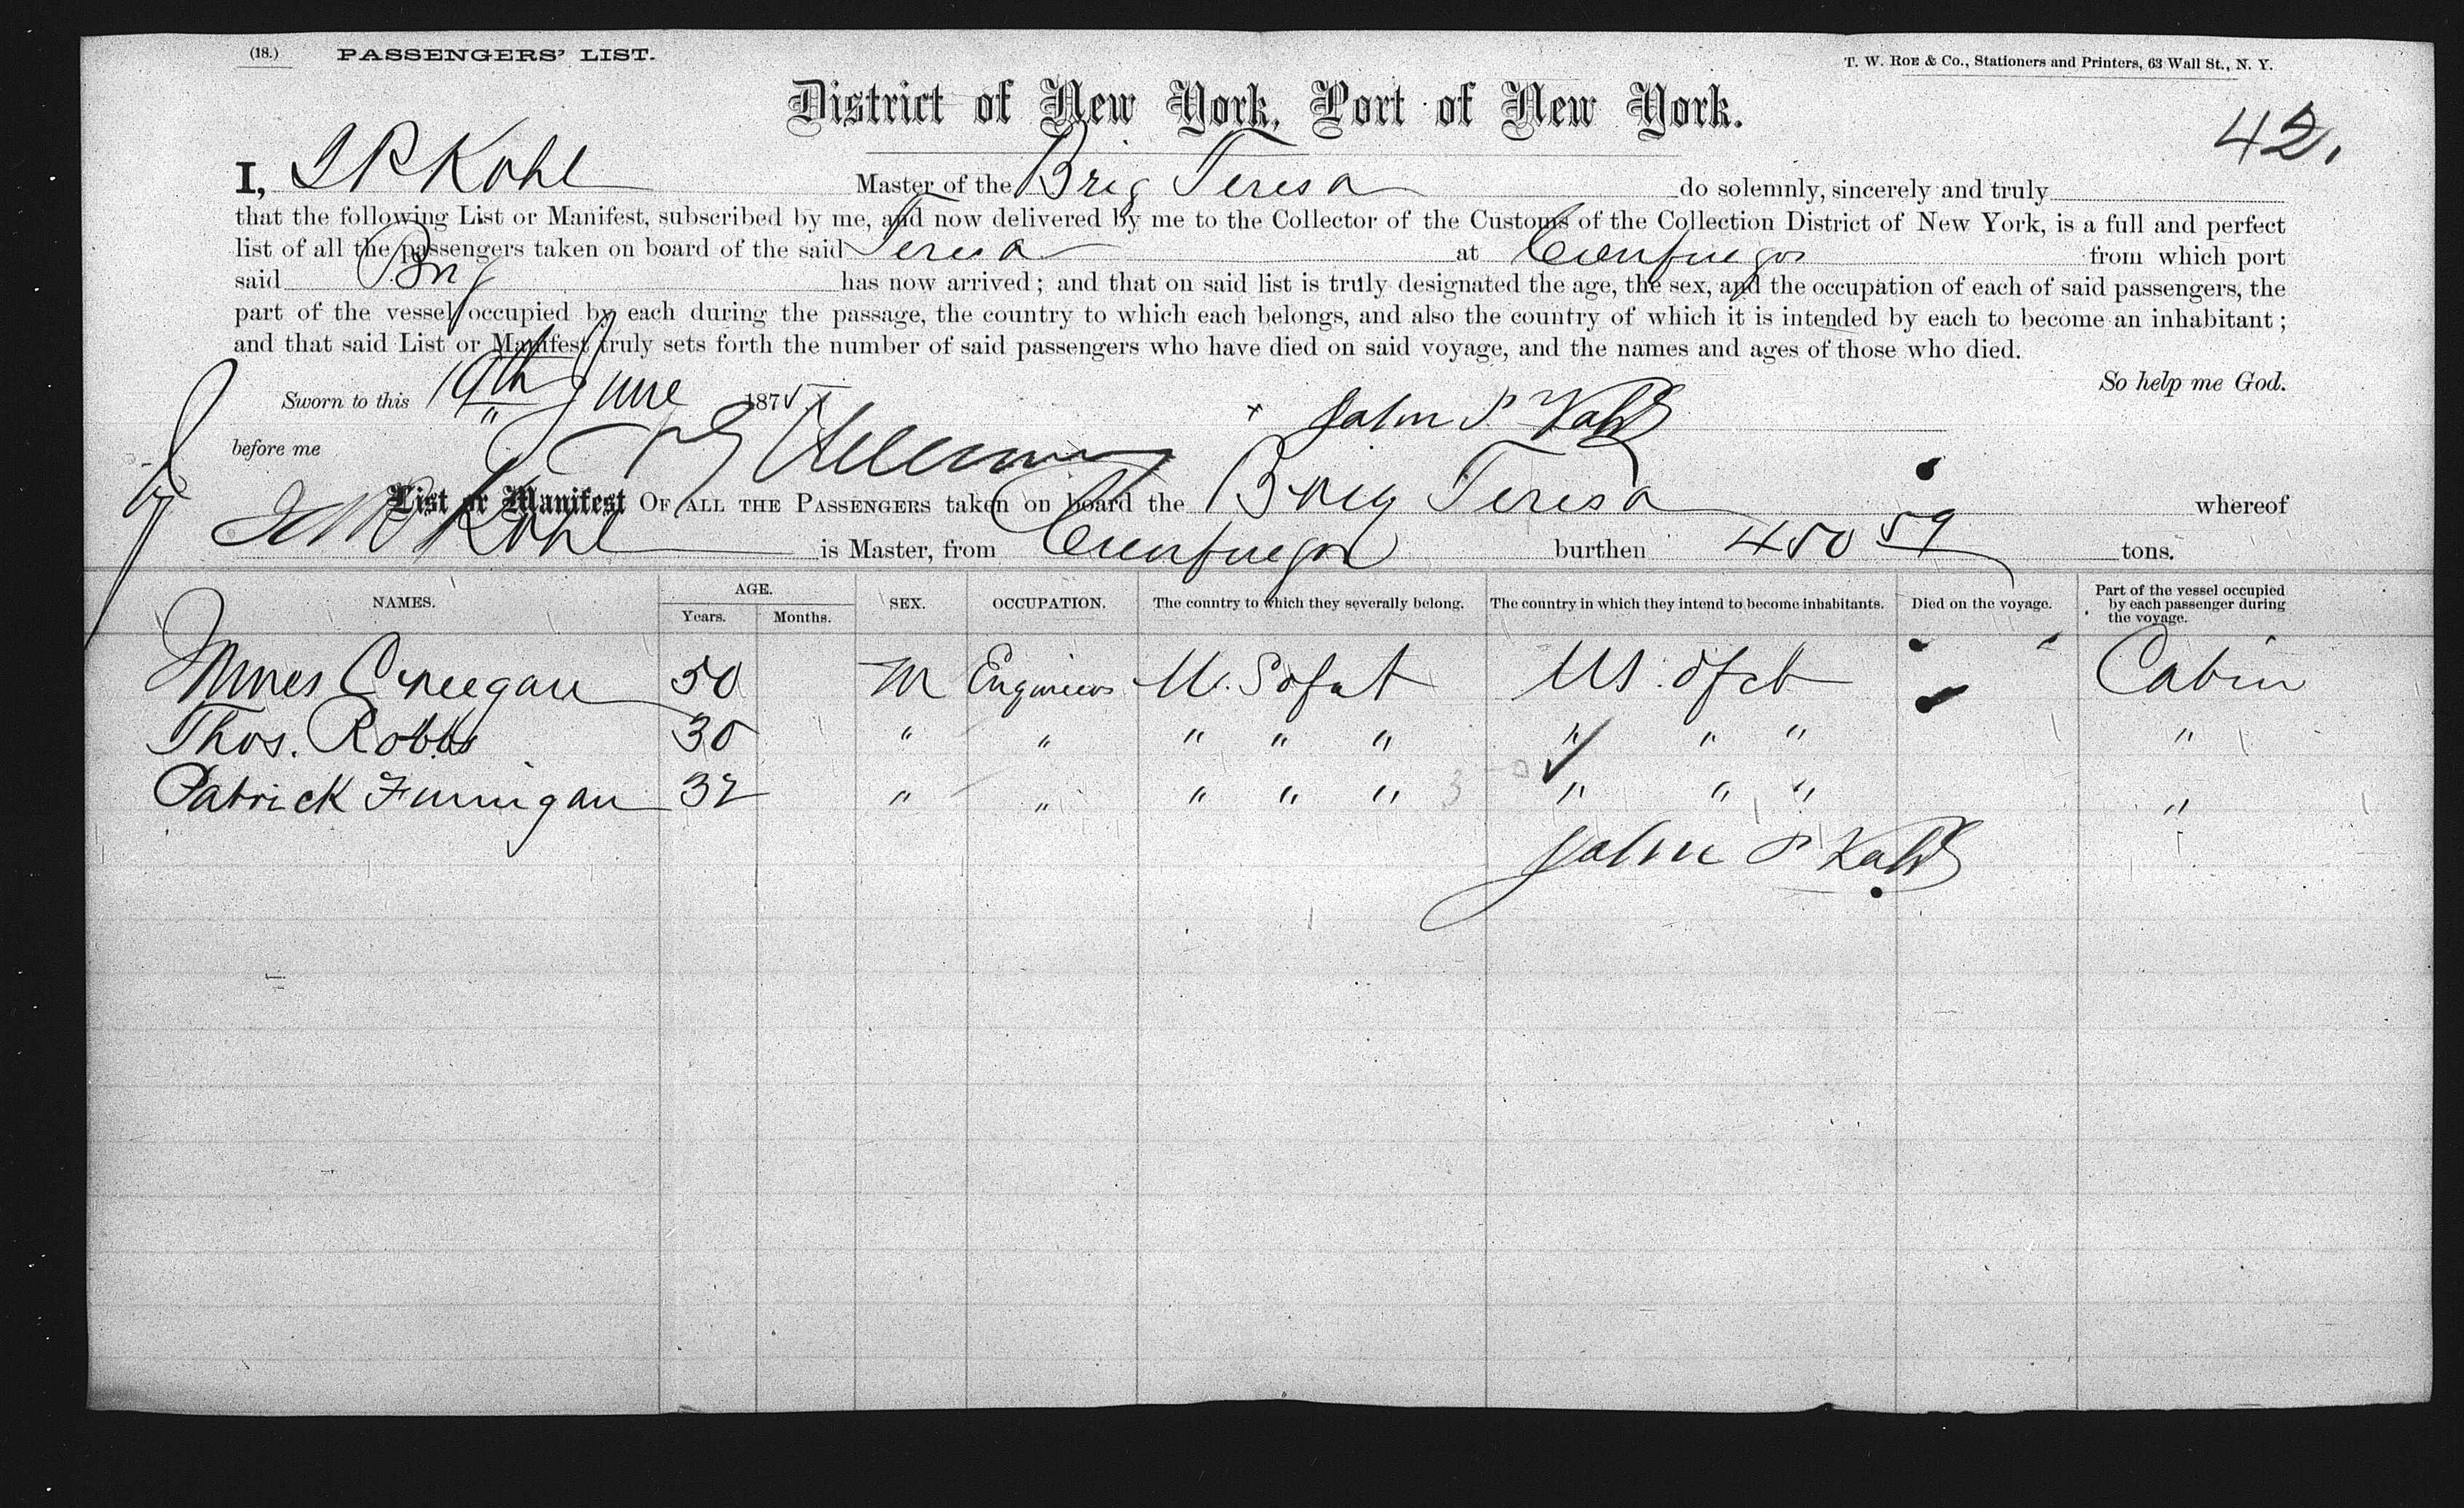 (18.) PASSENGERS' LIST.
T. W. ROE & Co., Stationers and Printers, 63 Wall St., N. Y.
District of New York, Port of New York.
42.
I, J P Kohl Master of the Brig Teresa do solemnly, sincerely and truly
that the following List or Manifest, subscribed by me, and now delivered by me to the Collector of the Customs of the Collection District of New York, is a full and perfect
list of all the passengers taken on board of the said Teresa at Cienfuegos from which port
said Brig has now arrived; and that on said list is truly designated the age, the sex, and the occupation of each of said passengers, the
part of the vessel occupied by each during the passage, the country to which each belongs, and also the country of which it is intended by each to become an inhabitant;
and that said List or Manifest truly sets forth the number of said passengers who have died on said voyage, and the names and ages of those who died.
So help me God.
Sworn to this 19th June 1875
John P Kohl
before me
List or Manifest OF ALL THE PASSENGERS taken on board the Brig Teresa whereof
Kohl is Master, from Cienfuegos burthen 450 59 tons.
NAMES. AGE. Years. Months. SEX. OCCUPATION. The country to which they severally belong. The country in which they intend to become inhabitants. Died on the voyage. Part of the vessel occupied by each passenger during the voyage.
Creegan 50 M Engineers U. S of at US of at Cabin
Thos. Robbs 30 " " " " " " " " "
Patrick Finnigan 32 " " " " " " " " "
John P Kohl